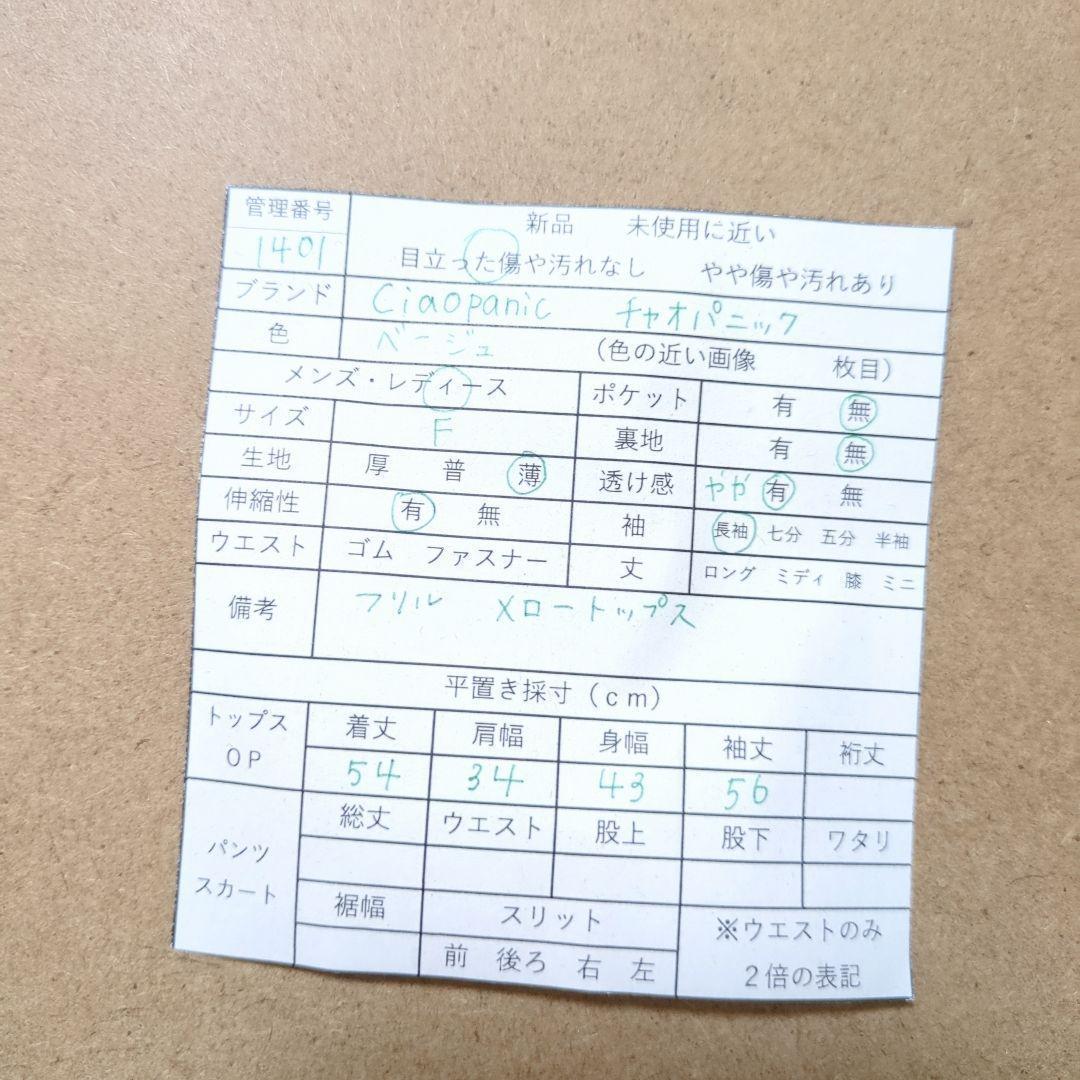 管理番号 新品 未使用に近い
1401 目立った傷や汚れなし やや傷や汚れあり
ブランド Ciaopanic チャオパニック
色 ベージュ (色の近い画像 枚目)
メンズ・レディース ポケット 有 無
サイズ F 裏地 有 無
生地 厚 普 薄 透け感 やや 有 無
伸縮性 有 無 袖 長袖 七分 五分 半袖
ウエスト ゴム ファスナー 丈 ロング ミディ 膝 ミニ
備考 フリル メロートップス
平置き採寸(cm)
トップス OP 着丈 肩幅 身幅 袖丈 裄丈
54 34 43 56
パンツ スカート 総丈 ウエスト 股上 股下 ワタリ
裾幅 スリット ※ウエストのみ
前 後ろ 右 左 2倍の表記